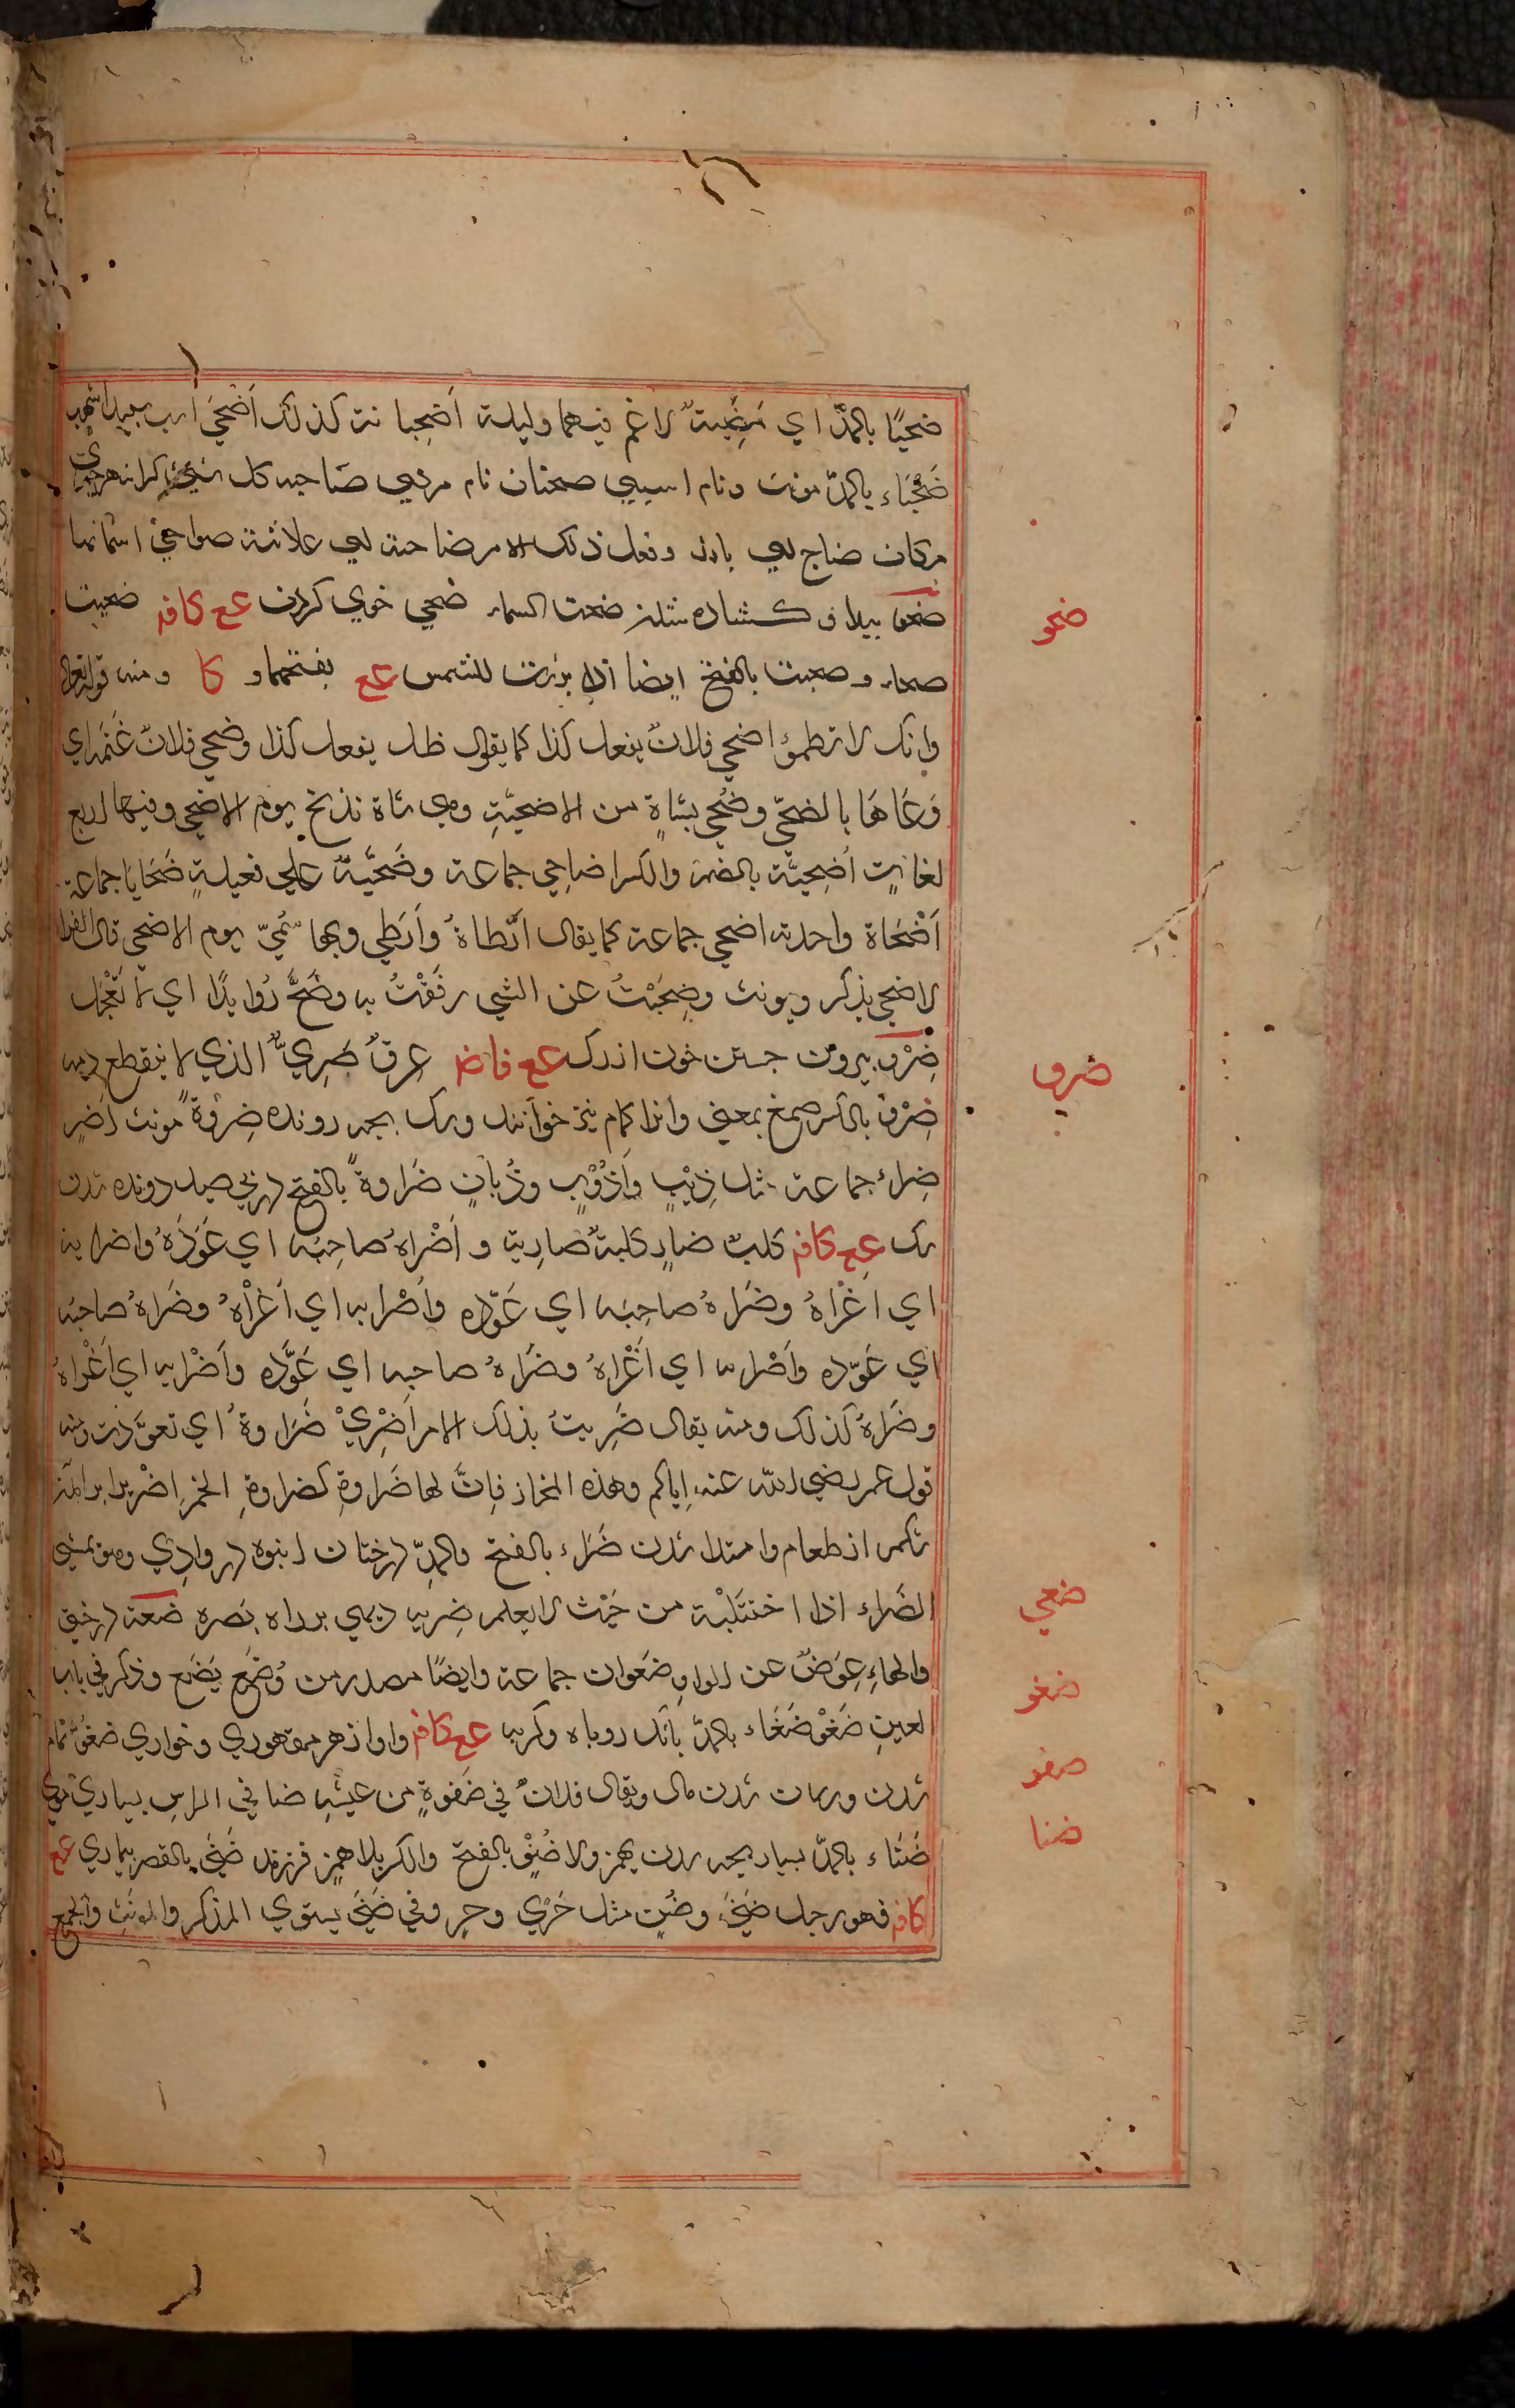 ضحيًا بالمدّ اي مُضِيّة لا غم فيهما وليلة اضحيانة كذلك اَضْحَى اسب سپيد اشهب
ضَحْيَاء بالمدّ مونث ونام اسپي ضحيان نام مردي ضاحيه كل شيء كرانه هر چيزي
مركان ضاح اي بارز وفعل ذلك الامر ضاحية اي علانية ضواحي اسمانها
ضحو پيدا و كشاده شدن ضحت السماء ضحي خوي كردن ع ع كافه ضحيت
ضحاء و ضحيت بالفتح ايضا اذا برزت للشمس ع ع بفتحهما و كا ومنه قوله تعالى
وانك لا تظمؤا اضحي فلانٌ يفعل كذا كما يقال ظل يفعل كذا وضحي فلانٌ غنمه اي
رَعَاهَا بالضحّي وضُحّي بشاةٍ من الاضحيّة وهي شاة تذبح يوم الاضحي وفيها اربع
لغاتٍ اُضحِيّة بالضم والكسر اضاحي جماعة وضَحيّة علي فعيلةٍ ضَحَايَا جماعة
اَضْحَاة واحدة اضحي جماعة كما يقال ارطاةٌ واَرطي وبها سُمّيّ يوم الاضحي قال الفرا
لاضحي يذكر ويونث وضِحَيْتُ عن الشي رفَقْتُ به وضَحّ رُوايدًا اي لا تَعْجَل
ضِرْو بيرون جستن خون از رك ع ع فاضه عِرقٌ ضَرِيٌّ الذي لا ينقطع دمه
ضِرْو بالكسر صمغ بمعني وانرا كمام نيز خوانند وسك بچه رونده ضِروةً مونث اَضرٍ
ضِراءٌ جماعة مثل ذِيْبٍ واَذْوُبٍ وذُبانٍ ضَراوةً بالفتح در پي صيد رونده شدن
سك ع ع كافه كلبٌ ضارٍ كلبةٌ ضاريةٌ و اَضْراهُ صاحِبُه اي عَوّدَهُ واضرا به
اي اغْراهُ وضَراهُ صاحِبُه اي عَوّده واَضْرا به اي اَغْراهُ وضَراهُ صاحبُه
اي عَوّده واَضْرا به اي اَغْراهُ وضَراهُ صاحبه اي عَوَّده واَضْرا به اي اَغْراهُ
وضَراهُ كذلك ومنه يقال ضَرِيتُ بذلك الامر اَضْرِيْ ضَراوةً اي تعوَّدت ومنه
قول عمر رضي الله عنه اِياكم وهذه المجازر فاِنَّ لها ضَراوةِ كضراوةِ الخمرِ اضريرا برآمدن
شكم از طعام وامتلا شدن ضَراء بالفتح والمدِّ درختان انبوه در وادي وهو يمشي
الضَراء اذا اختَلَيْته من حَيْث لا يعلم ضِريه ديهي براه بصره ضَعَة درختي
والهاءِ عِوَضٌ عن الواوِ ضَعوات جماعة وايضًا مصدر من وُضِعَ يَضَع وذكر في باب
العين ضَغْوْ ضَغَاء بالمدّ بانك روباه وكربه ع ع كافه واواز هر مقهوري وخواري ضفوٌّ تمام
شدن ورمان شدن مال ويقال فلانٌ في ضَفوةٍ من عيشِه ضافي الراسِ بسياري موي
ضَنَاء بالمدّ بسيار بچه شدن بهمز ولا ضُنْوْ بالفتح والكر بلا همزٍ فرزند ضَنيّ بالقصر بيماري ع ع
كافه فهو رجل ضَنيٌ وضُنٍ مثل حَرْي وحرٍ وفي ضَنيّ يستوي المذكر والمونث والجمع
ضحو
ضرو
ضعي
ضغو
ضفو
ضنا